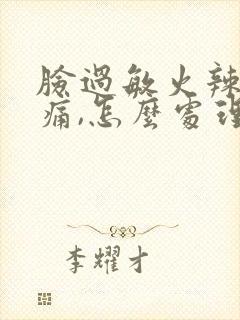 臉過敏火辣
痛,怎麼處理
李耀才